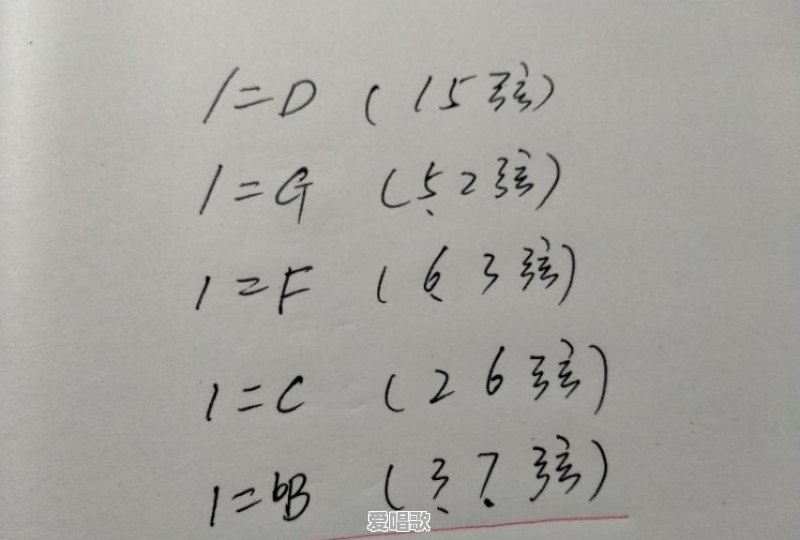 1=D (15弦)
1=G (5̣2弦)
1=F (6̣3弦)
1=C (26弦)
1=bB (3̣7̣弦)
爱唱歌